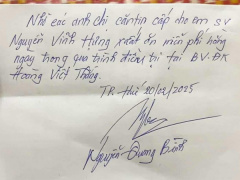 Nhờ các anh chị căn tin cấp cho em SV
Nguyễn Vĩnh Hưng xuất ăn miễn phí hàng
ngày trong quá trình điều trị tại BV.ĐK
Hoàng Viết Thắng.
TP. Huế 20/02/2025
Nguyễn Dương Bình